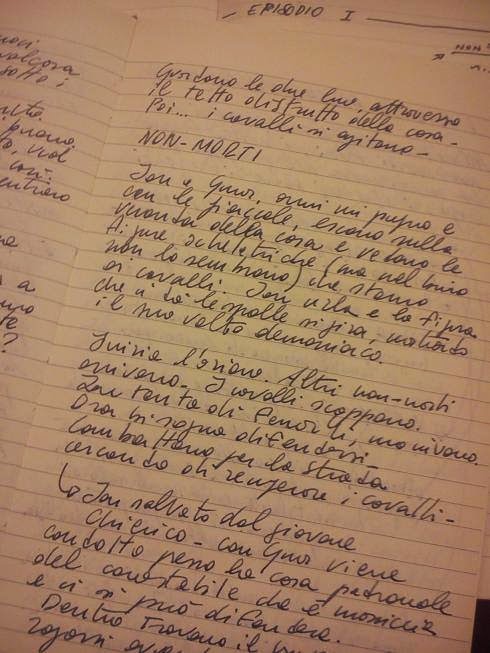 EPISODIO I
NON
Guardano le due lune, attraverso
il tetto distrutto della casa -
Poi... i cavalli si agitano -
NON-MORTI
Jan e Gmor, armi in pugno e
con le fiaccole, escono sulla
veranda della casa e vedono le
figure scheletriche (ma nel buio
non lo sembrano) che stanno
ai cavalli. Jan urla e la figura
che ci dà le spalle si gira, mostrando
il suo volto demoniaco.
Inizia l'azione. Altri non-morti
arrivano. I cavalli scappano.
Jan tenta di fermarli, ma invano.
Ora bisogna difendersi
Combattono per la strada
cercando di recuperare i cavalli -
↳ Jan salvato dal giovane
chierico - con Gmor viene
condotto presso la casa padronale
del conestabile che è massiccia
e ci si può difendere.
Dentro trovano il
ragazzi
noci
sotto i
piano
vidi
con
sentiero
a
te
?